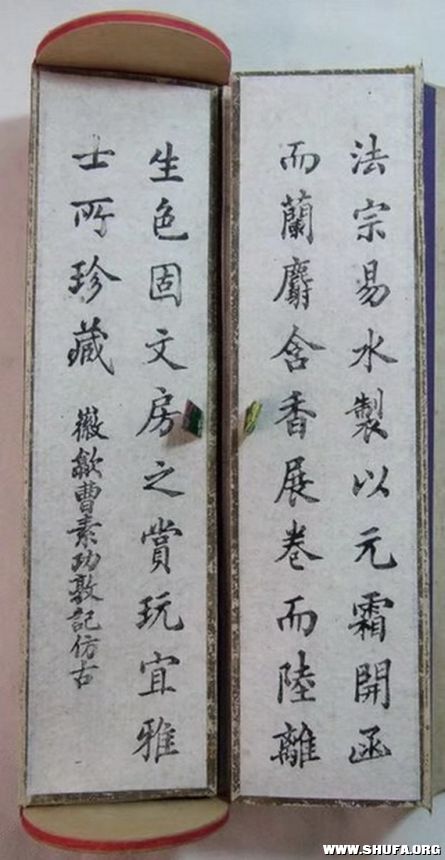 法宗易水製以元霜開函
而蘭麝含香展卷而陸離
生色固文房之賞玩宜雅
士所珍藏
徽歙曹素功敦記仿古
WWW.SHUFA.ORG